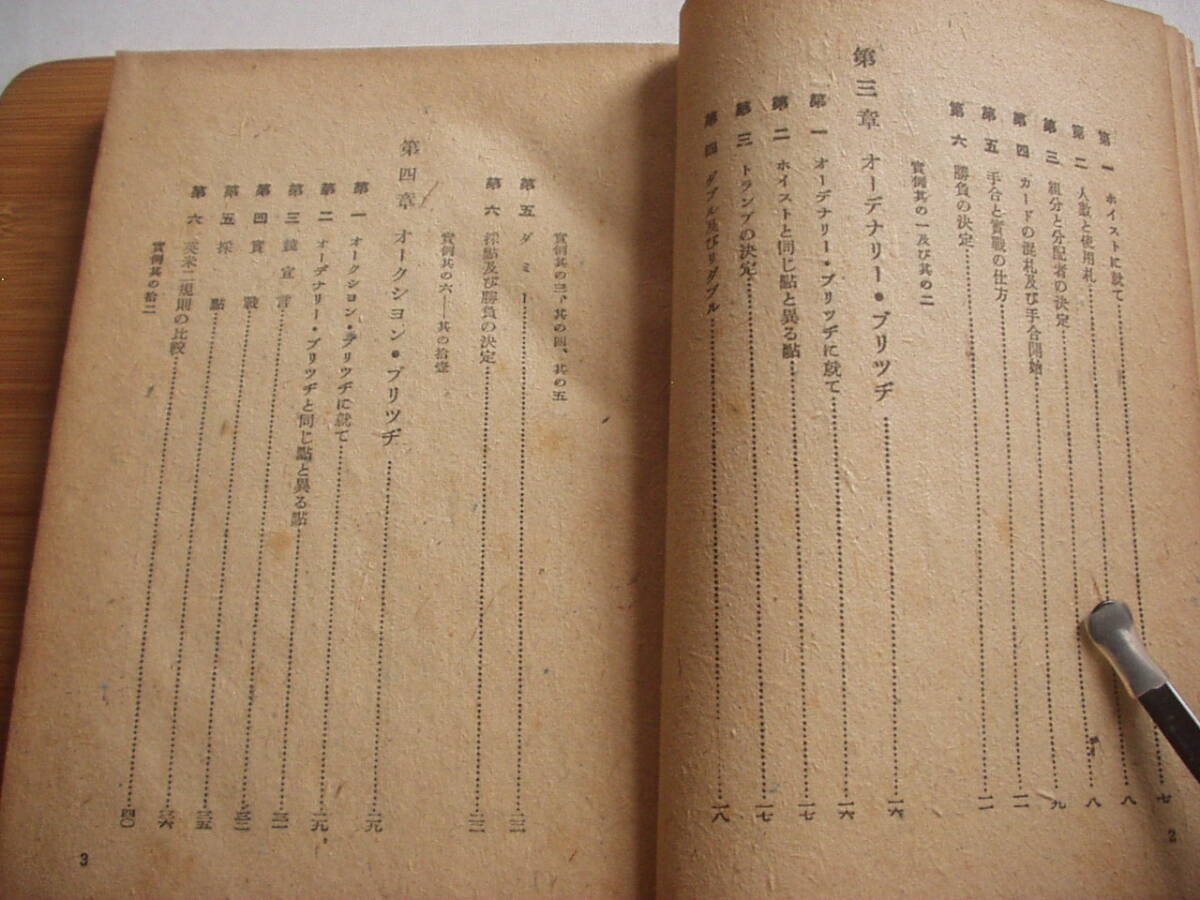 第一 ホイストに就て……七
第二 人数と使用札……八
第三 組分と分配者の決定……八
第四 カードの混札及び手合開始……九
第五 手合と實戰の仕方……一一
第六 勝負の決定……一一
實例其の一及び其の二
第三章 オーデナリー・ブリツヂ……一六
第一 オーデナリー・ブリツヂに就て……一六
第二 ホイストと同じ點と異る點……一七
第三 トランプの決定……一七
第四 ダブル及びリダブル……一八
2
實例其の三、其の四、其の五
第五 ダミー……二二
第六 採點及び勝負の決定……二三
實例其の六——其の拾壹
第四章 オークシヨン・ブリツヂ……二九
第一 オークシヨン・ブリツヂに就て……二九
第二 オーデナリー・ブリツヂと同じ點と異る點
第三 競宣言
第四 實戰
第五 採點……三五
第六 英米二規則の比較……三六
實例其の拾二……四〇
3